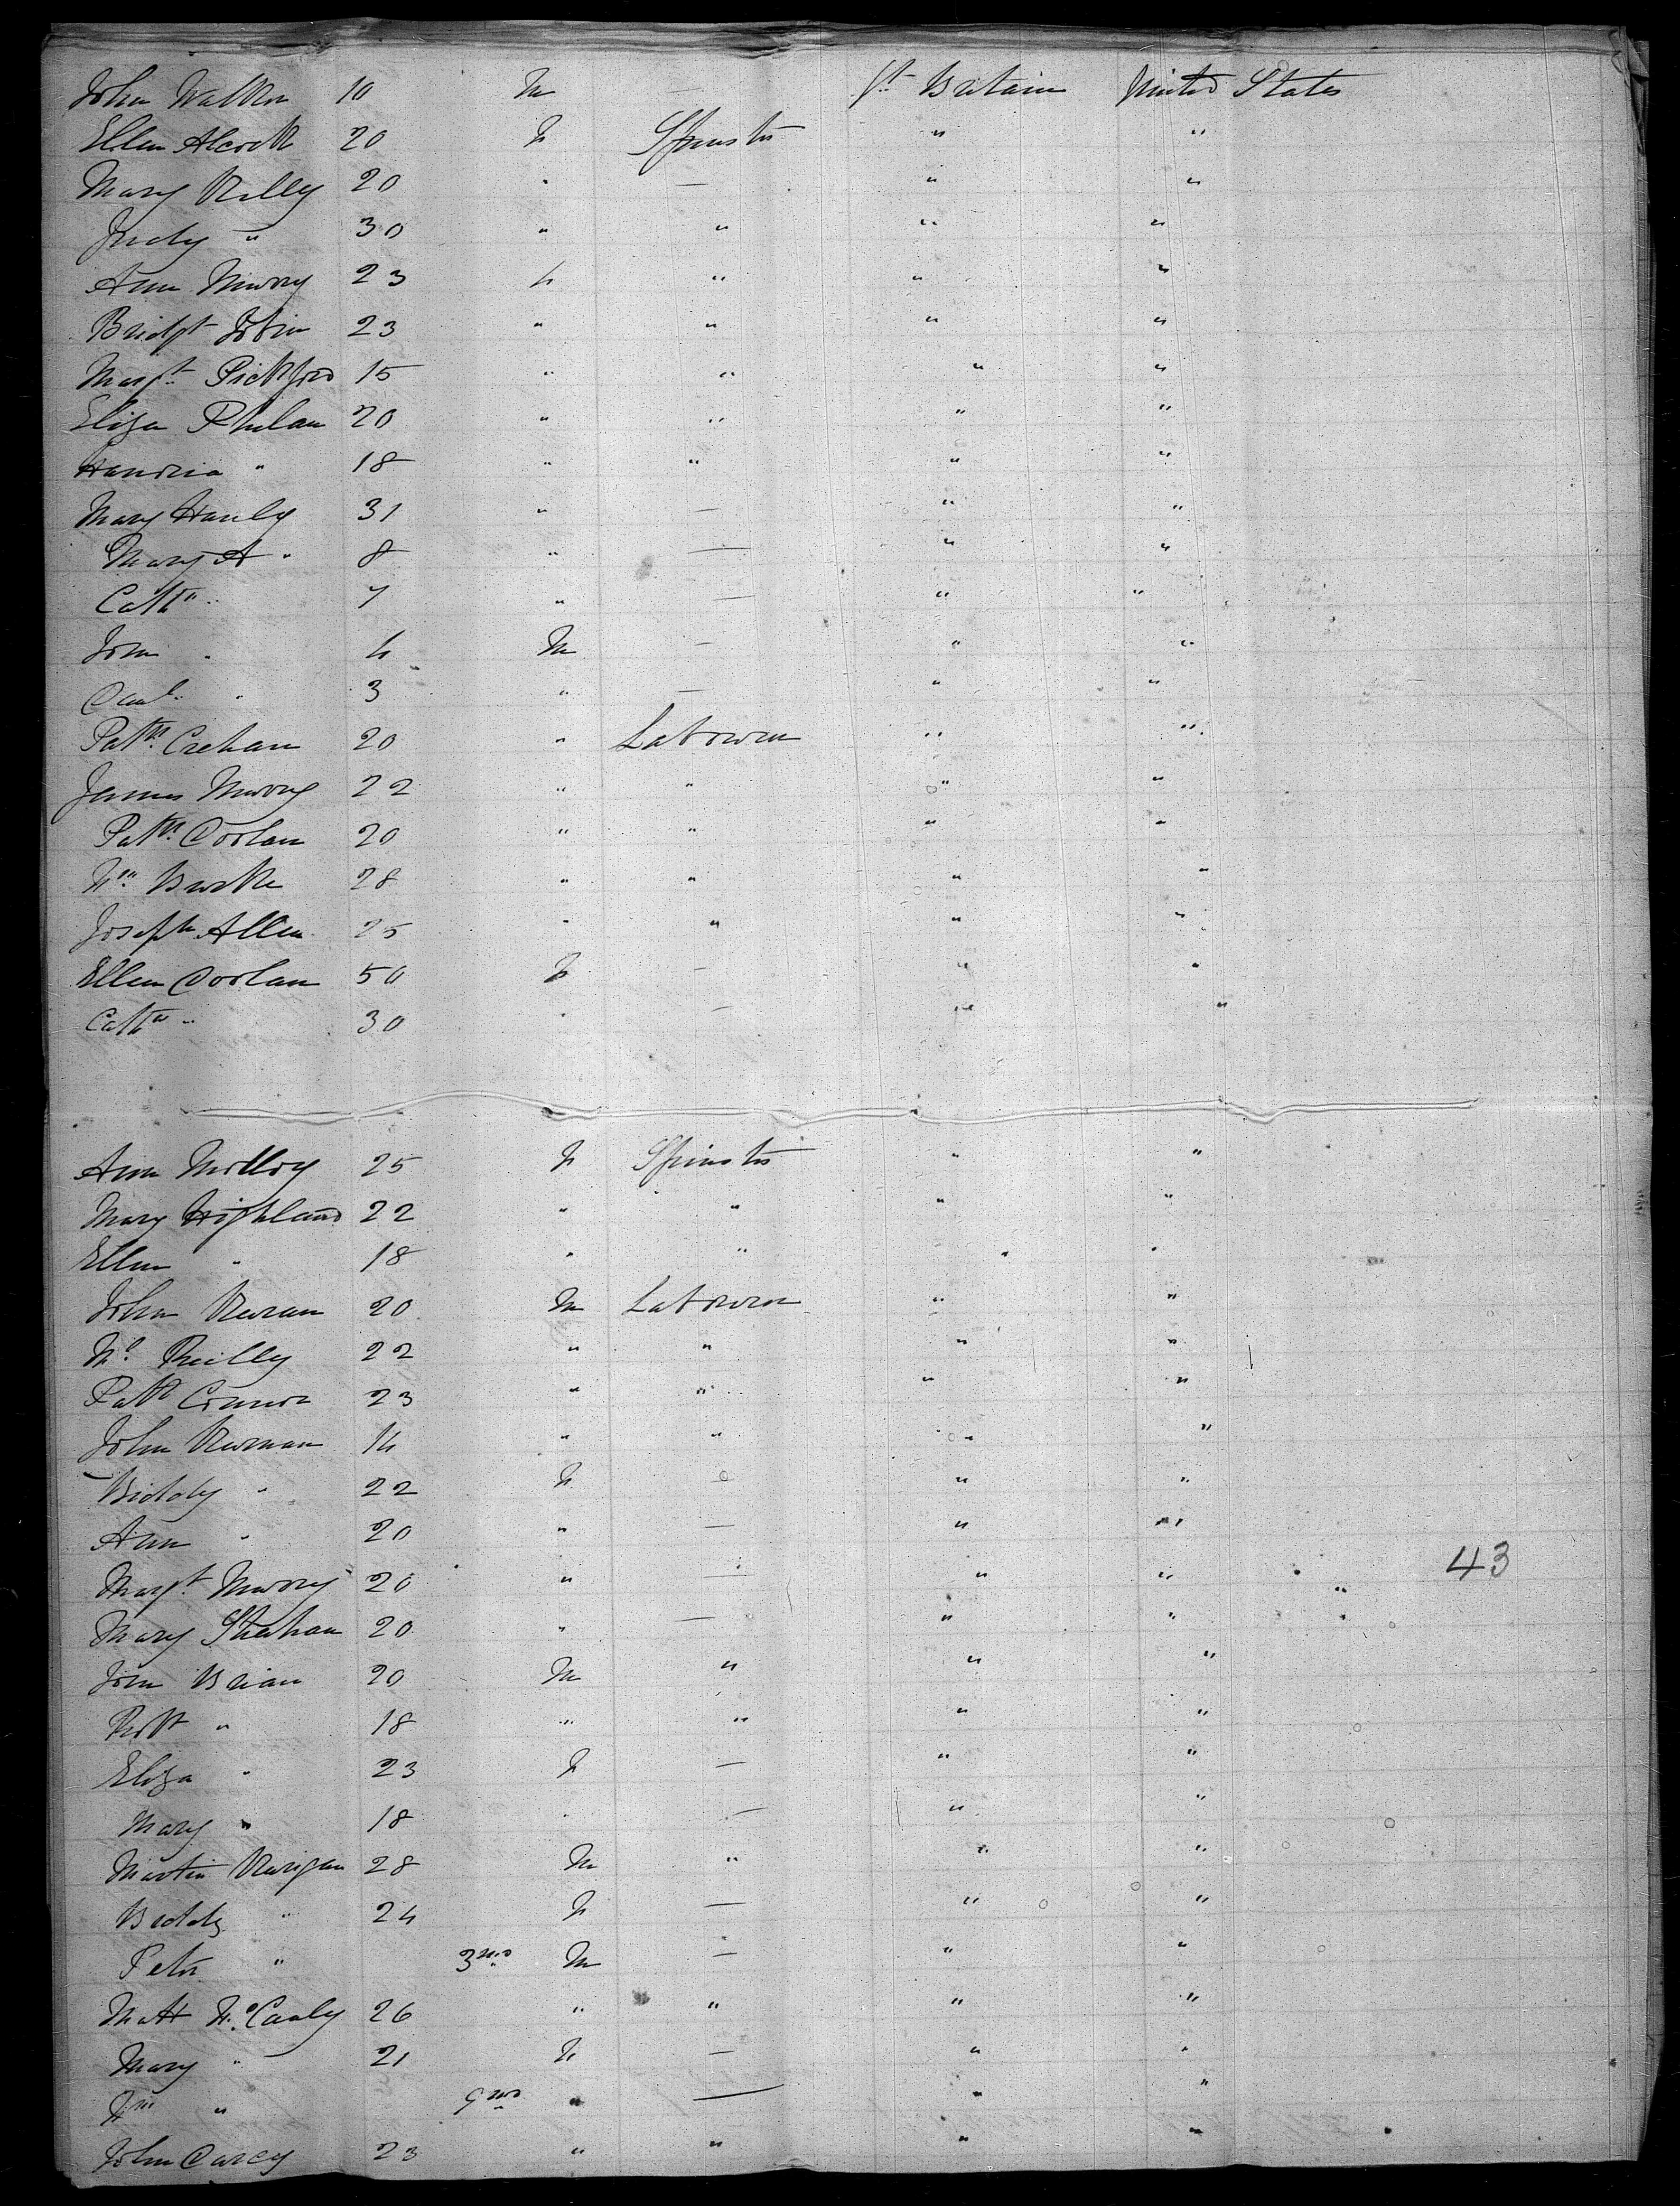 John Walker 10 M — Gt Britain United States
Ellen Alcock 20 F Spinster " "
Mary Kelly 20 " — " "
Judy " 30 " " " "
Ann Murry 23 F " " "
Bridgt Tobin 23 " " " "
Margt Pickford 15 " " " "
Eliza Phelan 20 " " " "
" 18 " " " "
Mary Hanly 31 " — " "
Mary A " 8 " — " "
Cathn " 7 " — " "
John " 4 M — " "
Danl " 3 " — " "
Patk Crehan 20 " Labourer " "
James Murry 22 " " " "
Patk Doolan 20 " " " "
Wm Burke 28 " " " "
Joseph Allen 25 " " " "
Ellen Doolan 50 F — " "
Cathn " 30 " — " "
Ann Molloy 25 F Spinster " "
Mary Highland 22 " " " "
Ellen " 18 " " " "
John Kieran 20 M Labourer " "
Reilly 22 " " " "
Patk Connor 23 " " " "
John Kiernan 14 " " " "
Biddy " 22 F — " "
Ann " 20 " — " "
Margt Murry 20 " — " " 43
Mary Shehan 20 " — " "
John Brian 20 M " " "
Robt " 18 " " " "
Eliza " 23 F — " "
Mary " 18 " — " "
Martin 28 M " " "
Biddy " 24 F — " "
Peter " 3 mo M — " "
Matt McCauly 26 " " " "
Mary " 21 F — " "
Wm " 9 mo " — " "
John Darcy 23 " " " "